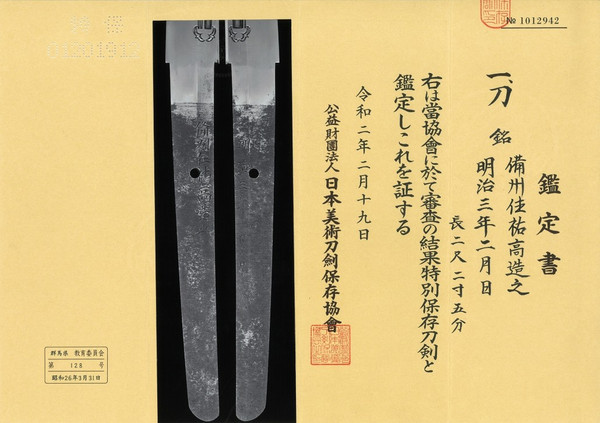 № 1012942
鑑定書
一、刀 銘 備州住祐高造之
明治三年二月日
長二尺二寸五分
右は當協會に於て審査の結果特別保存刀剣と
鑑定しこれを証する
令和二年二月十九日
公益財團法人 日本美術刀劍保存協會
群馬県 教育委員会
第 128 号
昭和26年3月31日